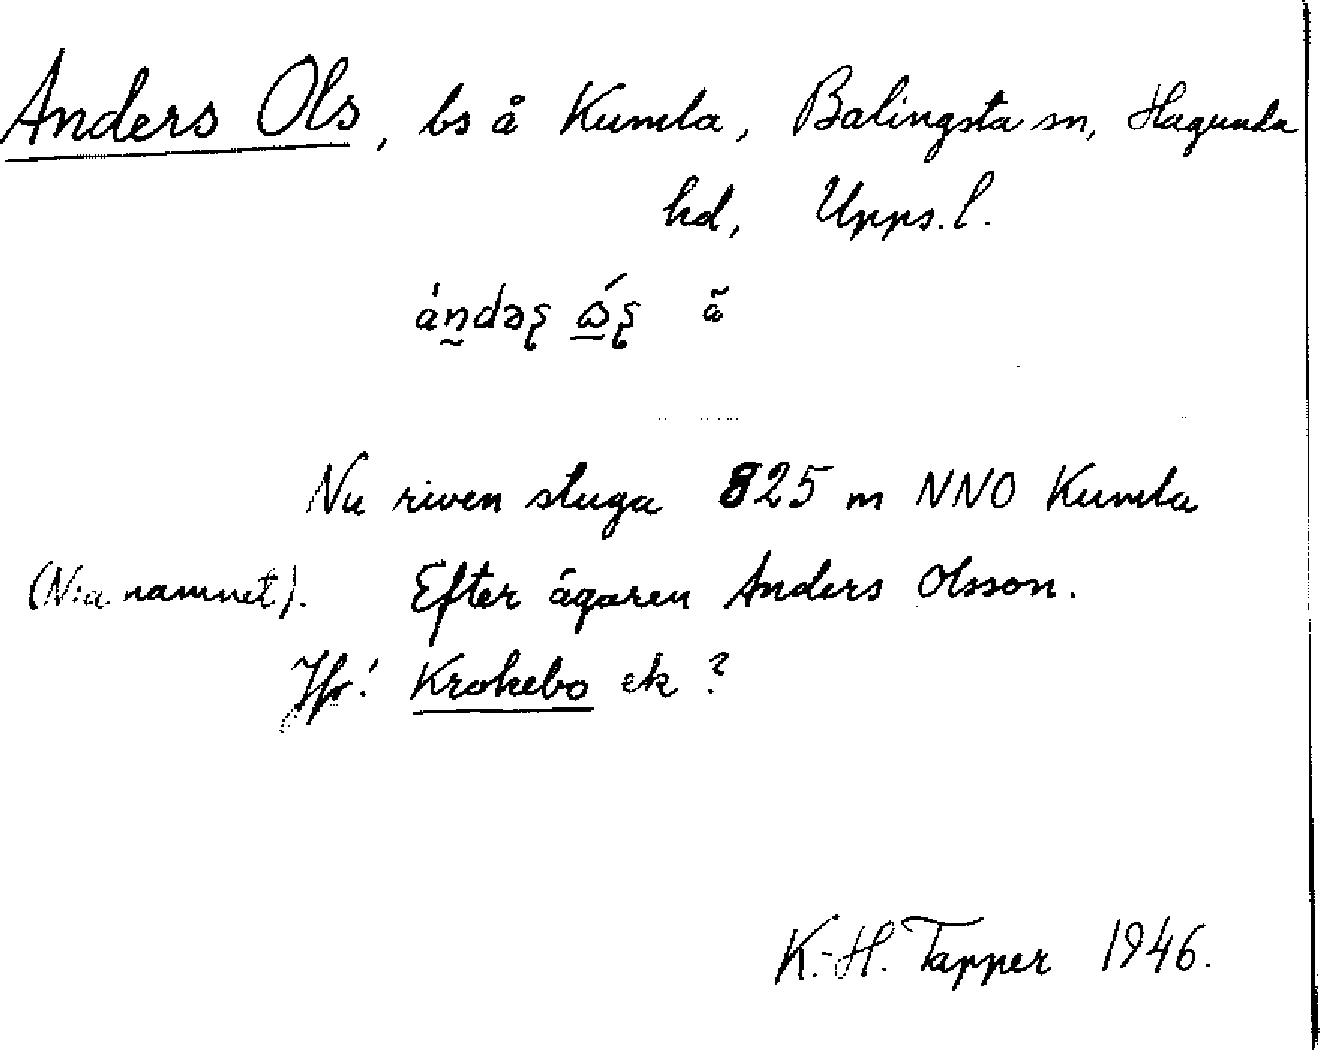 Anders Ols, bs å Kumla, Balingsta sn, Hagunda
hd, Upps. l.
Nu riven stuga 825 m NNO Kumla
(N:a namnet). Efter ägaren Anders Olsson.
Jfr! Krokebo ek ?
K.-H. Tapper 1946.